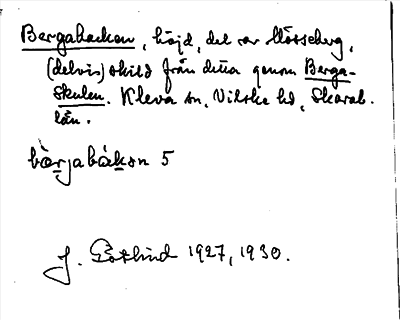 Bergabacken, höjd, del av Mösseberg,
(delvis) skild från detta genom Berga-
skulen. Kleva sn, Vilske hd, Skarab.
län.
bärjabäkən 5
J. Götlind 1927, 1930.